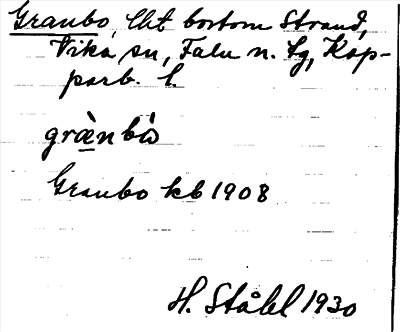 Granbo, lht bortom Strand,
Vika sn, Falu n. tg, Kop-
parb. l.
grànbò
Granbo kb 1908
H. Ståhl 1930